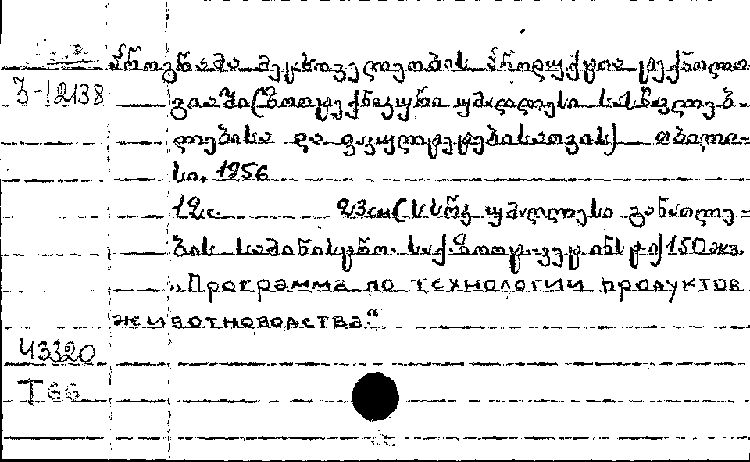 პროგრამა მეცხოველეობის პროდუქტთა ტექნოლო-
ვ-12138
გიაში (ზოოტექნიკური უმაღლესი სასწავლებ-
ლებისა და ფაკულტეტებისათვის) თბილი-
სი. 1956
12с. 23см (სსრკ უმაღლესი განათლე-
ბის სამინისტრო. საქ. ზოოტ.-ვეტ ინსტიტ) 150 экз.
„Программа по технологии продуктов
животноводства."
43320
Т66